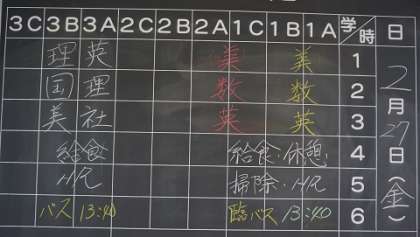 3C 3B 3A 2C 2B 2A 1C 1B 1A 学時 日
理 英 美 美 1
国 理 数 数 2
美 社 英 英 3
給食 給食・休憩 4
HR 掃除・HR 5
バス 13:40 臨バス 13:40 6
2月27日(金)